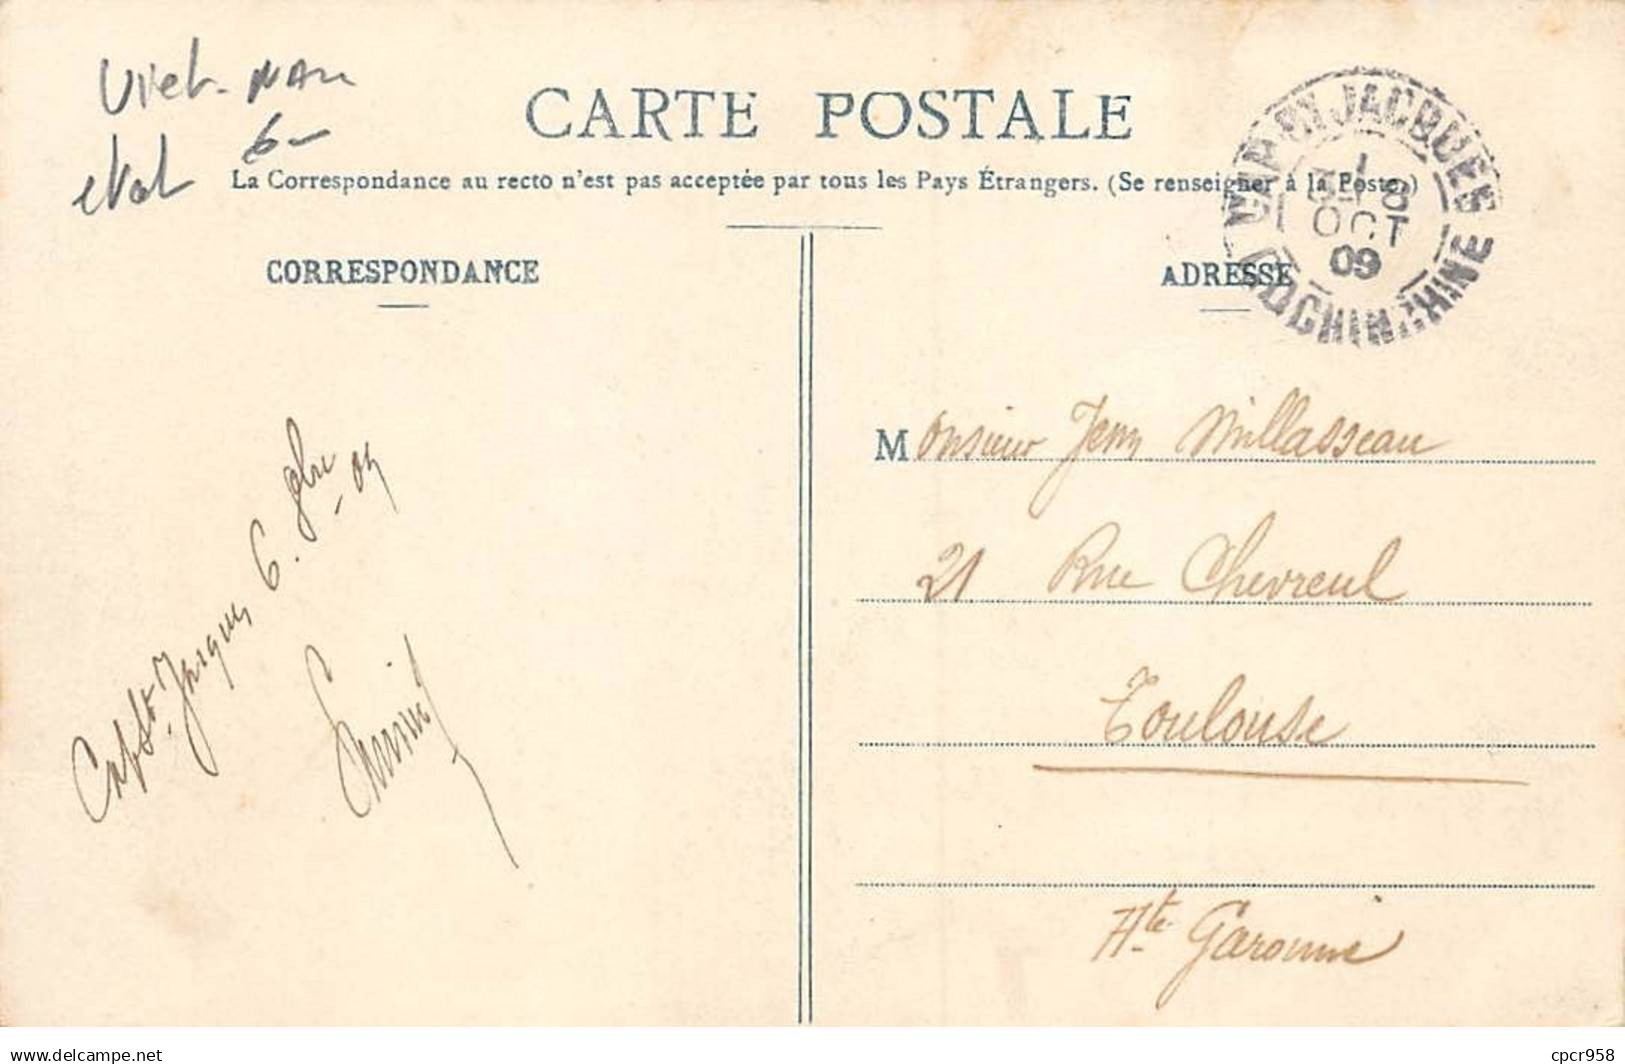 Viet-Nam
6-
etat
CARTE POSTALE
La Correspondance au recto n'est pas acceptée par tous les Pays Étrangers. (Se renseigner à la Poste.)
CAP ST JACQUES
OCT
09
COCHINCHINE
CORRESPONDANCE
ADRESSE
Monsieur Jean Millasseau
21 Rue Chevreul
Toulouse
Hte Garonne
Cap St. Jacques 6. 9bre - 09
www.delcampe.net
cpcr958